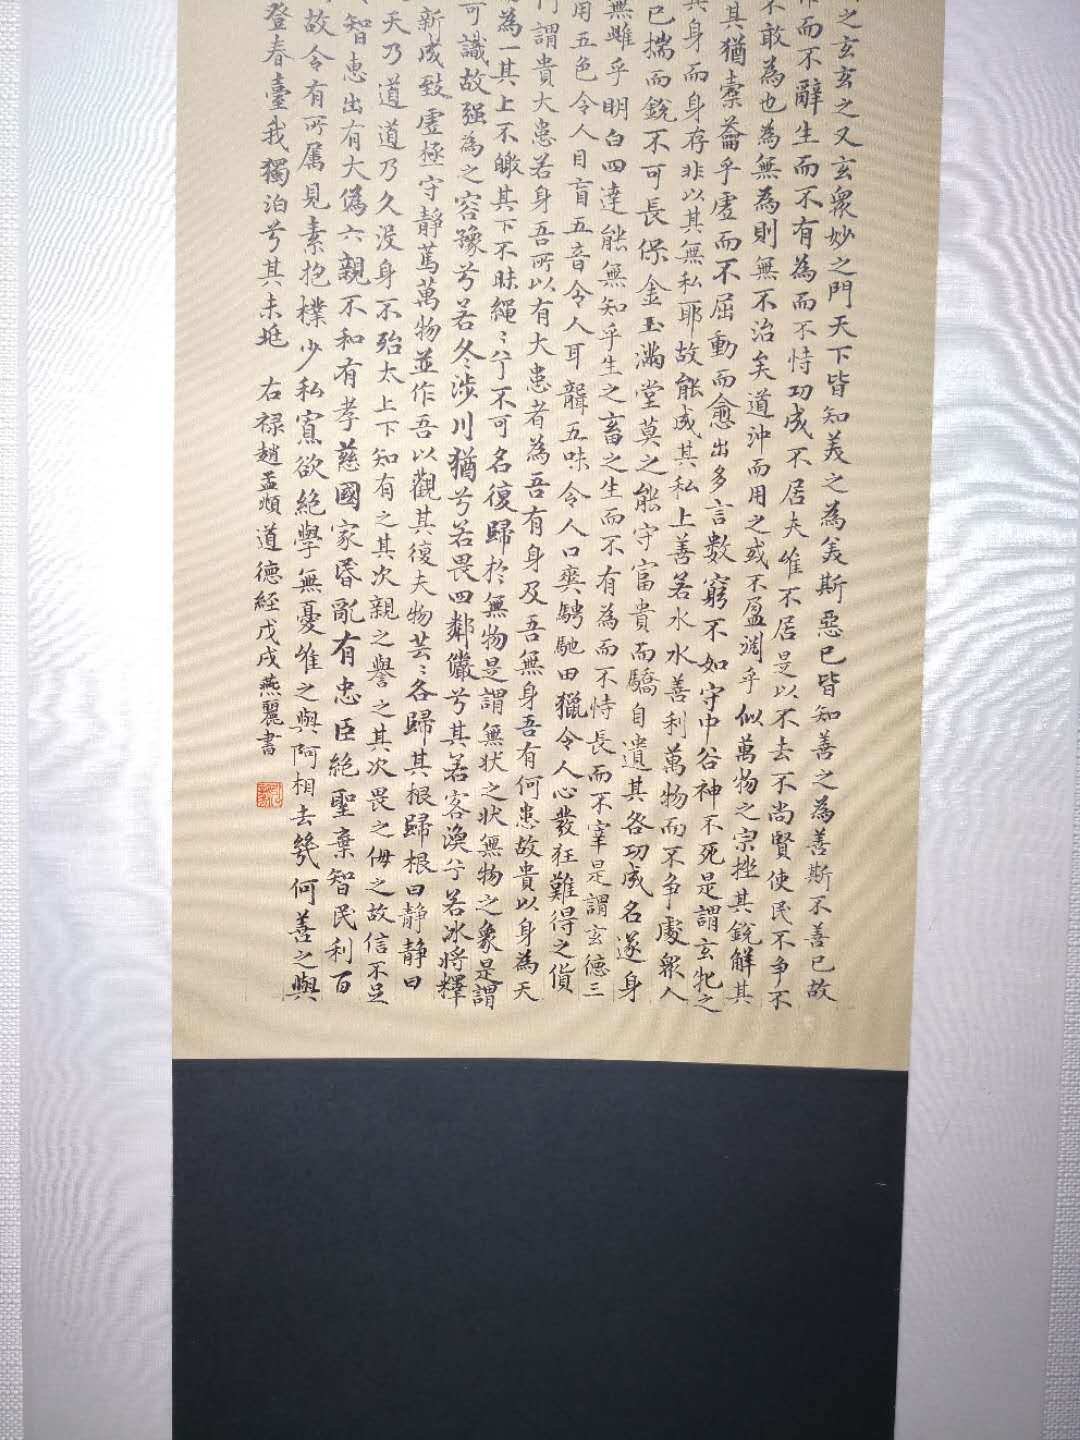 之玄玄之又玄眾妙之門天下皆知美之為美斯惡已皆知善之為善斯不善已故
而不辭生而不有為而不恃功成不居夫惟不居是以不去不尚賢使民不爭不
不敢為也為無為則無不治矣道沖而用之或不盈淵乎似萬物之宗挫其銳解其
其猶橐籥乎虛而不屈動而愈出多言數窮不如守中谷神不死是謂玄牝之
其身而身存非以其無私耶故能成其私上善若水水善利萬物而不爭處眾人
已揣而銳不可長保金玉滿堂莫之能守富貴而驕自遺其咎功成名遂身
無雌乎明白四達能無知乎生之畜之生而不有為而不恃長而不宰是謂玄德三
用五色令人目盲五音令人耳聾五味令人口爽騁馳田獵令人心發狂難得之貨
謂貴大患若身吾所以有大患者為吾有身及吾無身吾有何患故貴以身為天
為一其上不皦其下不昧繩〻兮不可名復歸於無物是謂無狀之狀無物之象是謂
可識故強為之容豫兮若冬涉川猶兮若畏四鄰儼兮其若客渙兮若冰將釋
新成致虛極守靜篤萬物並作吾以觀其復夫物芸〻各歸其根歸根曰靜靜曰
天乃道道乃久沒身不殆太上下知有之其次親之譽之其次畏之侮之故信不足
智惠出有大偽六親不和有孝慈國家昬亂有忠臣絕聖棄智民利百
故令有所屬見素抱樸少私寡欲絕學無憂惟之與阿相去幾何善之與
登春臺我獨泊兮其未兆 右祿趙孟頫道德經戊戌燕麗書